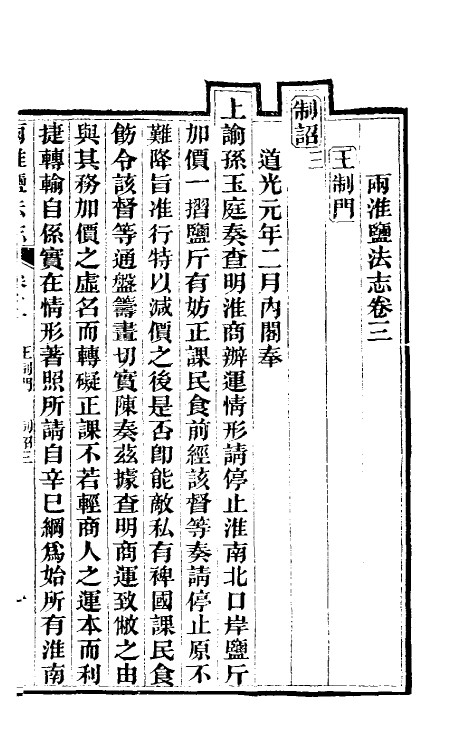 兩淮鹽法志卷三
王制門
制詔三
道光元年二月內閣奉
上諭孫玉庭奏查明淮商辦運情形請停止淮南北口岸鹽斤
加價一摺鹽斤有妨正課民食前經該督等奏請停止原不
難降旨准行特以減價之後是否卽能敵私有裨國課民食
飭令該督等通盤籌畫切實陳奏茲據查明商運致敝之由
與其務加價之虛名而轉礙正課不若輕商人之運本而利
捷轉輸自係實在情形著照所請自辛巳綱爲始所有淮南
兩淮鹽法志 王制門 制詔三